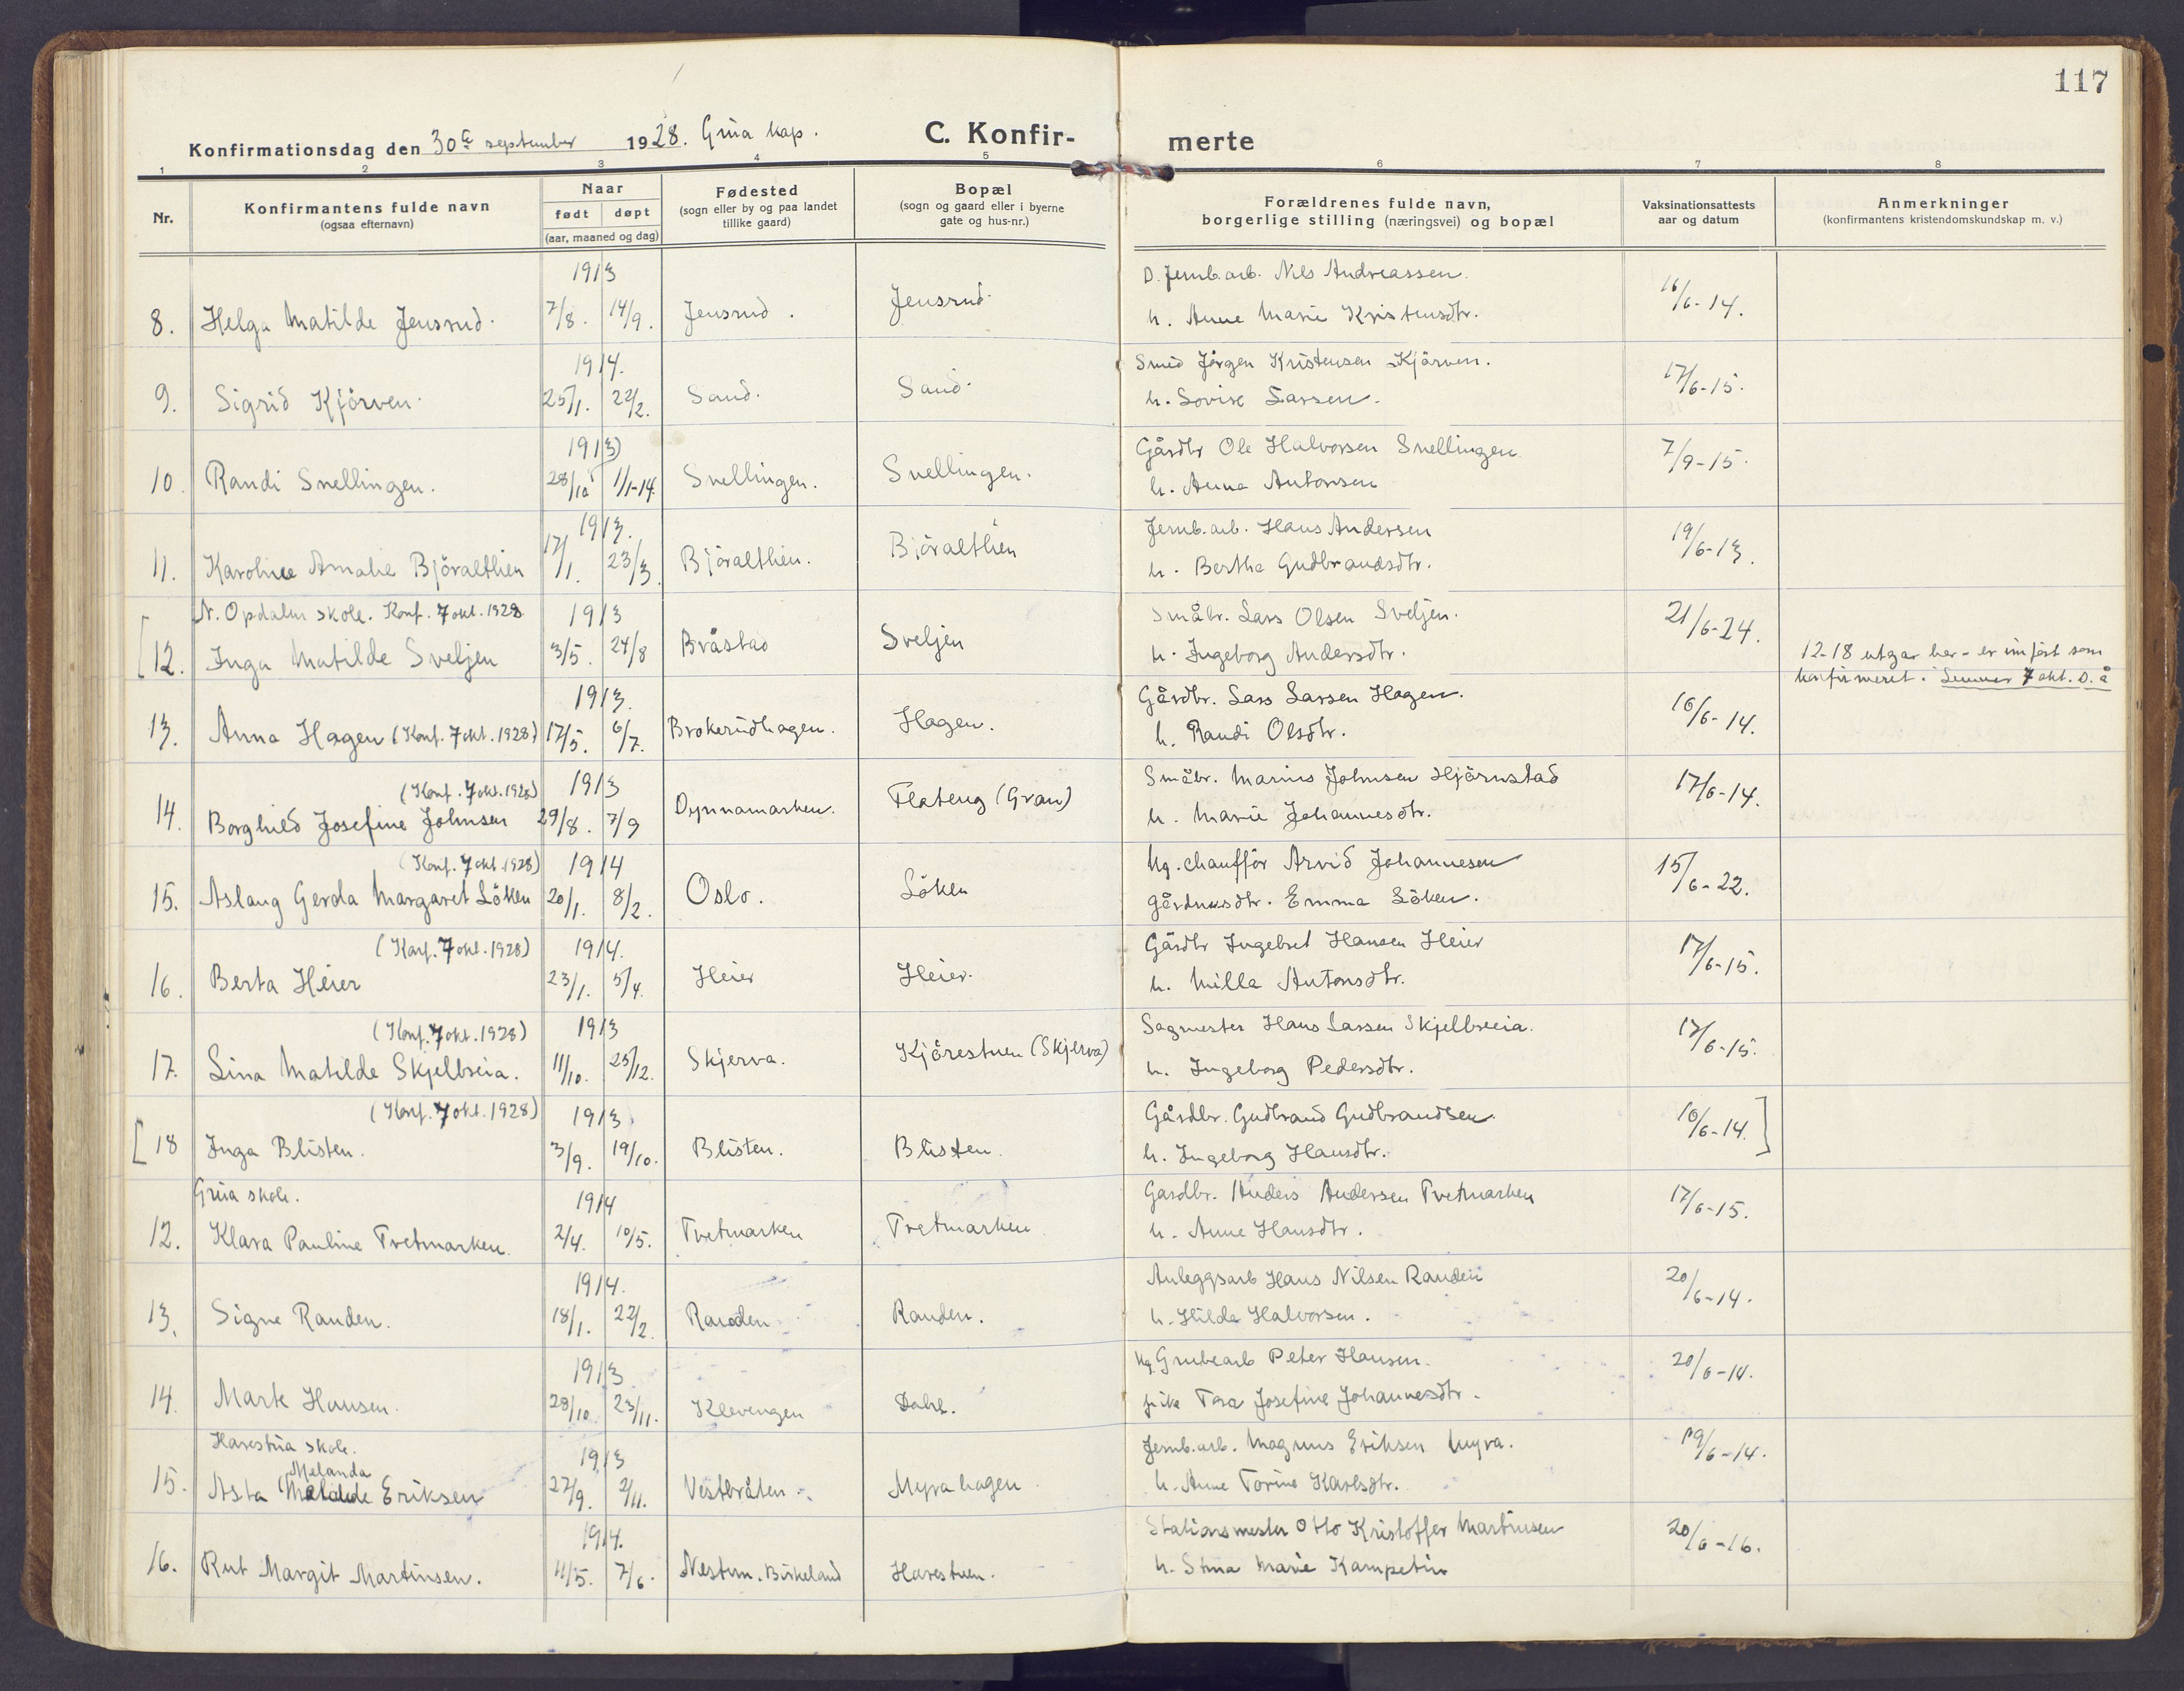 117
Konfirmationsdag den 30te september 1928. Grua kap. C. Konfir- merte
1 2 3 4 5 6 7 8
Nr. Konfirmantens fulde navn (ogsaa efternavn) Naar født døpt (aar, maaned og dag) Fødested (sogn eller by og paa landet tillike gaard) Bopæl (sogn og gaard eller i byerne gate og hus-nr.) Forældrenes fulde navn, borgerlige stilling (næringsvei) og bopæl Vaksinationsattests aar og datum Anmerkninger (konfirmantens kristendomskundskap m. v.)
1913 D. Jernb.arb. Nils Andreassen.
8. Helga Matilde Jensrud. 7/8. 14/9. Jensrud. Jensrud. h. Anne Marie Kristensdtr. 16/6-14.
1914. Smed Jörgen Kristensen Kjörven.
9. Sigrid Kjörven. 25/1. 22/2. Sand. Sand. h. Lovise Larsen. 17/6-15.
1913 Gårdbr Ole Halvorsen Snellingen
10. Randi Snellingen. 28/10 1/1-14. Snellingen. Snellingen. h. Anna Antonsen 7/9-15.
1913. Jernb.arb. Hans Andersen
11. Karoline Amalie Björalthien 17/1. 23/3. Björalthien. Björalthien h. Bertha Gudbrandsdtr. 19/6-13.
N. Opdalen skole. Konf. 7 okt. 1928 1913 Småbr. Lars Olsen Sveljen.
[12. Inga Matilde Sveljen 3/5. 24/8 Bråstad Sveljen h. Ingeborg Andersdtr. 21/6-24. 12-18 utgar her - er innført som
konfirmeret i Lunner 7 okt. d. å
1913. Gårdbr. Lars Larsen Hagen.
13. Anna Hagen (Konf. 7 okt. 1928) 17/5. 6/7. Brokerudhagen. Hagen. h. Randi Olsdtr. 16/6-14.
(Konf. 7 okt. 1928) 1913 Småbr. Marius Johnsen Hjörnstad
14. Borghild Josefine Johnsen 29/8. 7/9 Dynnamarken. Flateng (Gran) h. Marie Johannesdtr. 17/6-14.
(Konf. 7 okt. 1928) 1914 Ug. chaufför Arvid Johannesen
15. Aslaug Gerda Margaret Löken 20/1. 8/2. Oslo. Löken Emma Löken. 15/6-22.
(Konf. 7 okt. 1928) 1914. Gårdbr Ingebret Hansen Heier
16. Berta Heier 23/1. 5/4. Heier Heier. h. Milla Antonsdtr. 17/6-15.
(Konf. 7 okt. 1928) 1913 Sagmester Hans Larsen Skjelbreeia.
17. Lina Matilde Skjelbreia. 11/10. 25/12. Skjerva. Kjörestuen (Skjerva) h. Ingeborg Pedersdtr. 17/6-15.
(Konf. 7 okt. 1928) 1913 Gårdbr. Gudbrand Gudbrandsen.
[18 Inga Blisten. 3/9. 19/10. Blisten. Blisten. h. Ingeborg Hansdtr. 10/6-14.]
Grua skole. 1914 Gardbr. Anders Andersen Tvetmarken
12. Klara Pauline Tvetmarken. 2/4. 10/5. Tvetmarken Tvetmarken h. Anne Hansdtr. 17/6-15.
1914. Anleggsarb Hans Nilsen Randen
13. Signe Randen. 18/1. 22/2. Randen Randen. h. Hilda Halvorsen. 20/6-14.
1913 Ug. Grubearb Peter Hansen.
14. Marte Hansen. 28/10 23/11. Klevengen Dahl. pike Tora Josefine Johannesdtr. 20/6-14.
Harestua skole. 1913 Jernb.arb. Magnus Eriksen Myra.
Melanda
15. Asta Eriksen 27/9. 2/11. Vestbråten Myrahagen h. Anne Torine Karlsdtr. 19/6-14.
1914. Stationsmester Otto Kristoffer Martinsen
16. Rut Margit Martinsen. 11/5. 7/6. Nestun. Birkeland Harestuen. h. Stina Marie 20/6-16.